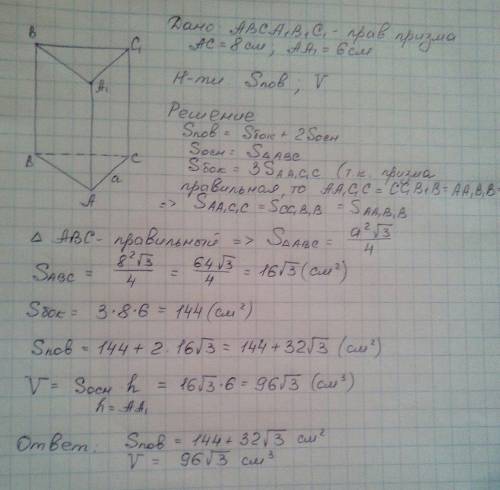 Дано: ABCA₁B₁C₁ - прав призма
AC = 8 см, AA₁ = 6 см
Н-ти Sпов ; V
Решение
Sпов = Sбок + 2Sосн
Sосн = S△ABC
Sбок = 3S AA₁C₁C (т.к. призма
правильная, то AA₁C₁C = CC₁B₁B = AA₁B₁B
=> S AA₁C₁C = S CC₁B₁B = S AA₁B₁B
△ ABC - правильный => S△ABC = a²√3/4
S ABC = 8²√3/4 = 64√3/4 = 16√3 (см²)
Sбок = 3·8·6 = 144 (см²)
Sпов = 144 + 2·16√3 = 144 + 32√3 (см²)
V = Sосн·h = 16√3·6 = 96√3 (см³)
h = AA₁
Ответ: Sпов = 144 + 32√3 см²
V = 96√3 см³
B
C₁
A₁
B
C
a
A